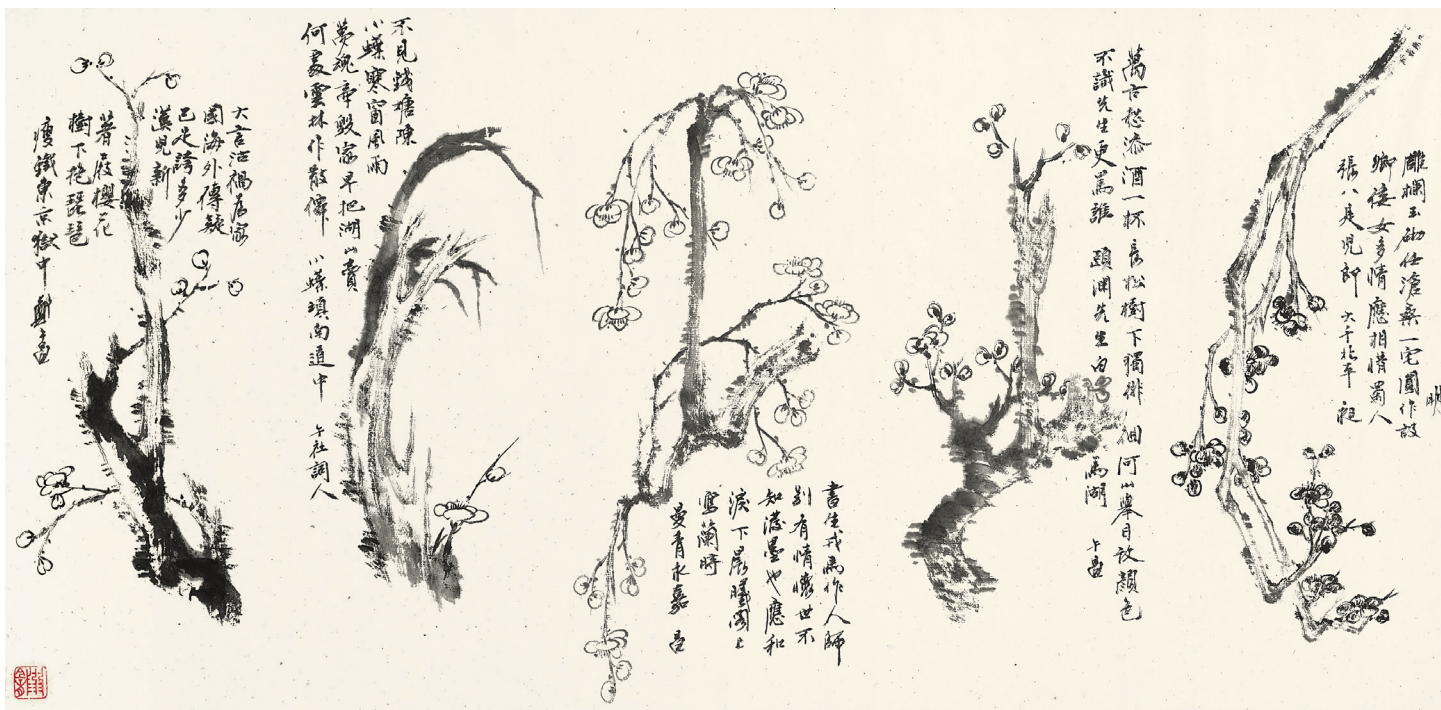 雕欄玉砌任滄桑一宅園作故
鄉倭女多情應相惜蜀人
張八是兒郎 大千北平
萬古愁添酒一杯長松樹下獨徘徊 河山舉目故顏色
不識先生更為誰 頤淵先生白馬湖 午昌
書生戎馬作人師
別有情懷世不
知潑墨也應和
淚下晨曦閣上
寫蘭時
曼青永嘉
不見錢塘陳
小蝶寒窗風雨
夢魂帝毀家早把湖山賣
何處雲林作散僊 小蝶滇南道中 午社詞人
大言沽禍為家
國海外傳疑
已足誇多少
漢兒新
著屐櫻花
樹下抱琵琶
瘦鐵東京獄中 鄭